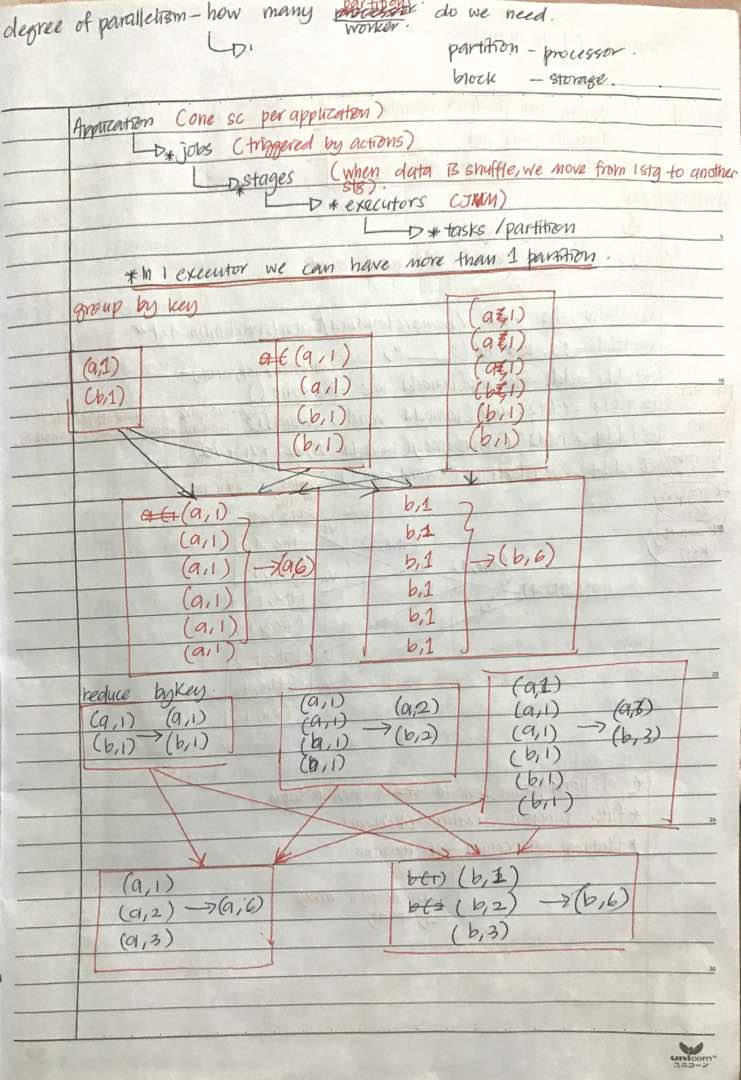 partition
degree of parallelism - how many processor do we need.
worker.
partition - processor.
block - storage.
Application (one sc per application)
* jobs (triggered by actions)
* stages (when data is shuffle, we move from 1 stg to another stg).
* executors (JVM)
* tasks / partition
* In 1 executor we can have more than 1 partition.
group by key
(a,1)
(b,1)
(a,1)
(a,1)
(b,1)
(b,1)
(a,1)
(a,1)
(a,1)
(b,1)
(b,1)
(b,1)
(a,1)
(a,1)
(a,1) → (a,6)
(a,1)
(a,1)
(a,1)
b,1
b,1
b,1 → (b,6)
b,1
b,1
b,1
reduce bykey.
(a,1) (a,1)
(b,1) → (b,1)
(a,1) (a,2)
(a,1) → (b,2)
(b,1)
(b,1)
(a,1)
(a,1) (a,3)
(a,1) → (b,3)
(b,1)
(b,1)
(b,1)
(a,1)
(a,2) → (a,6)
(a,3)
(b,1)
(b,2) → (b,6)
(b,3)
unicorn™
ユニコーン